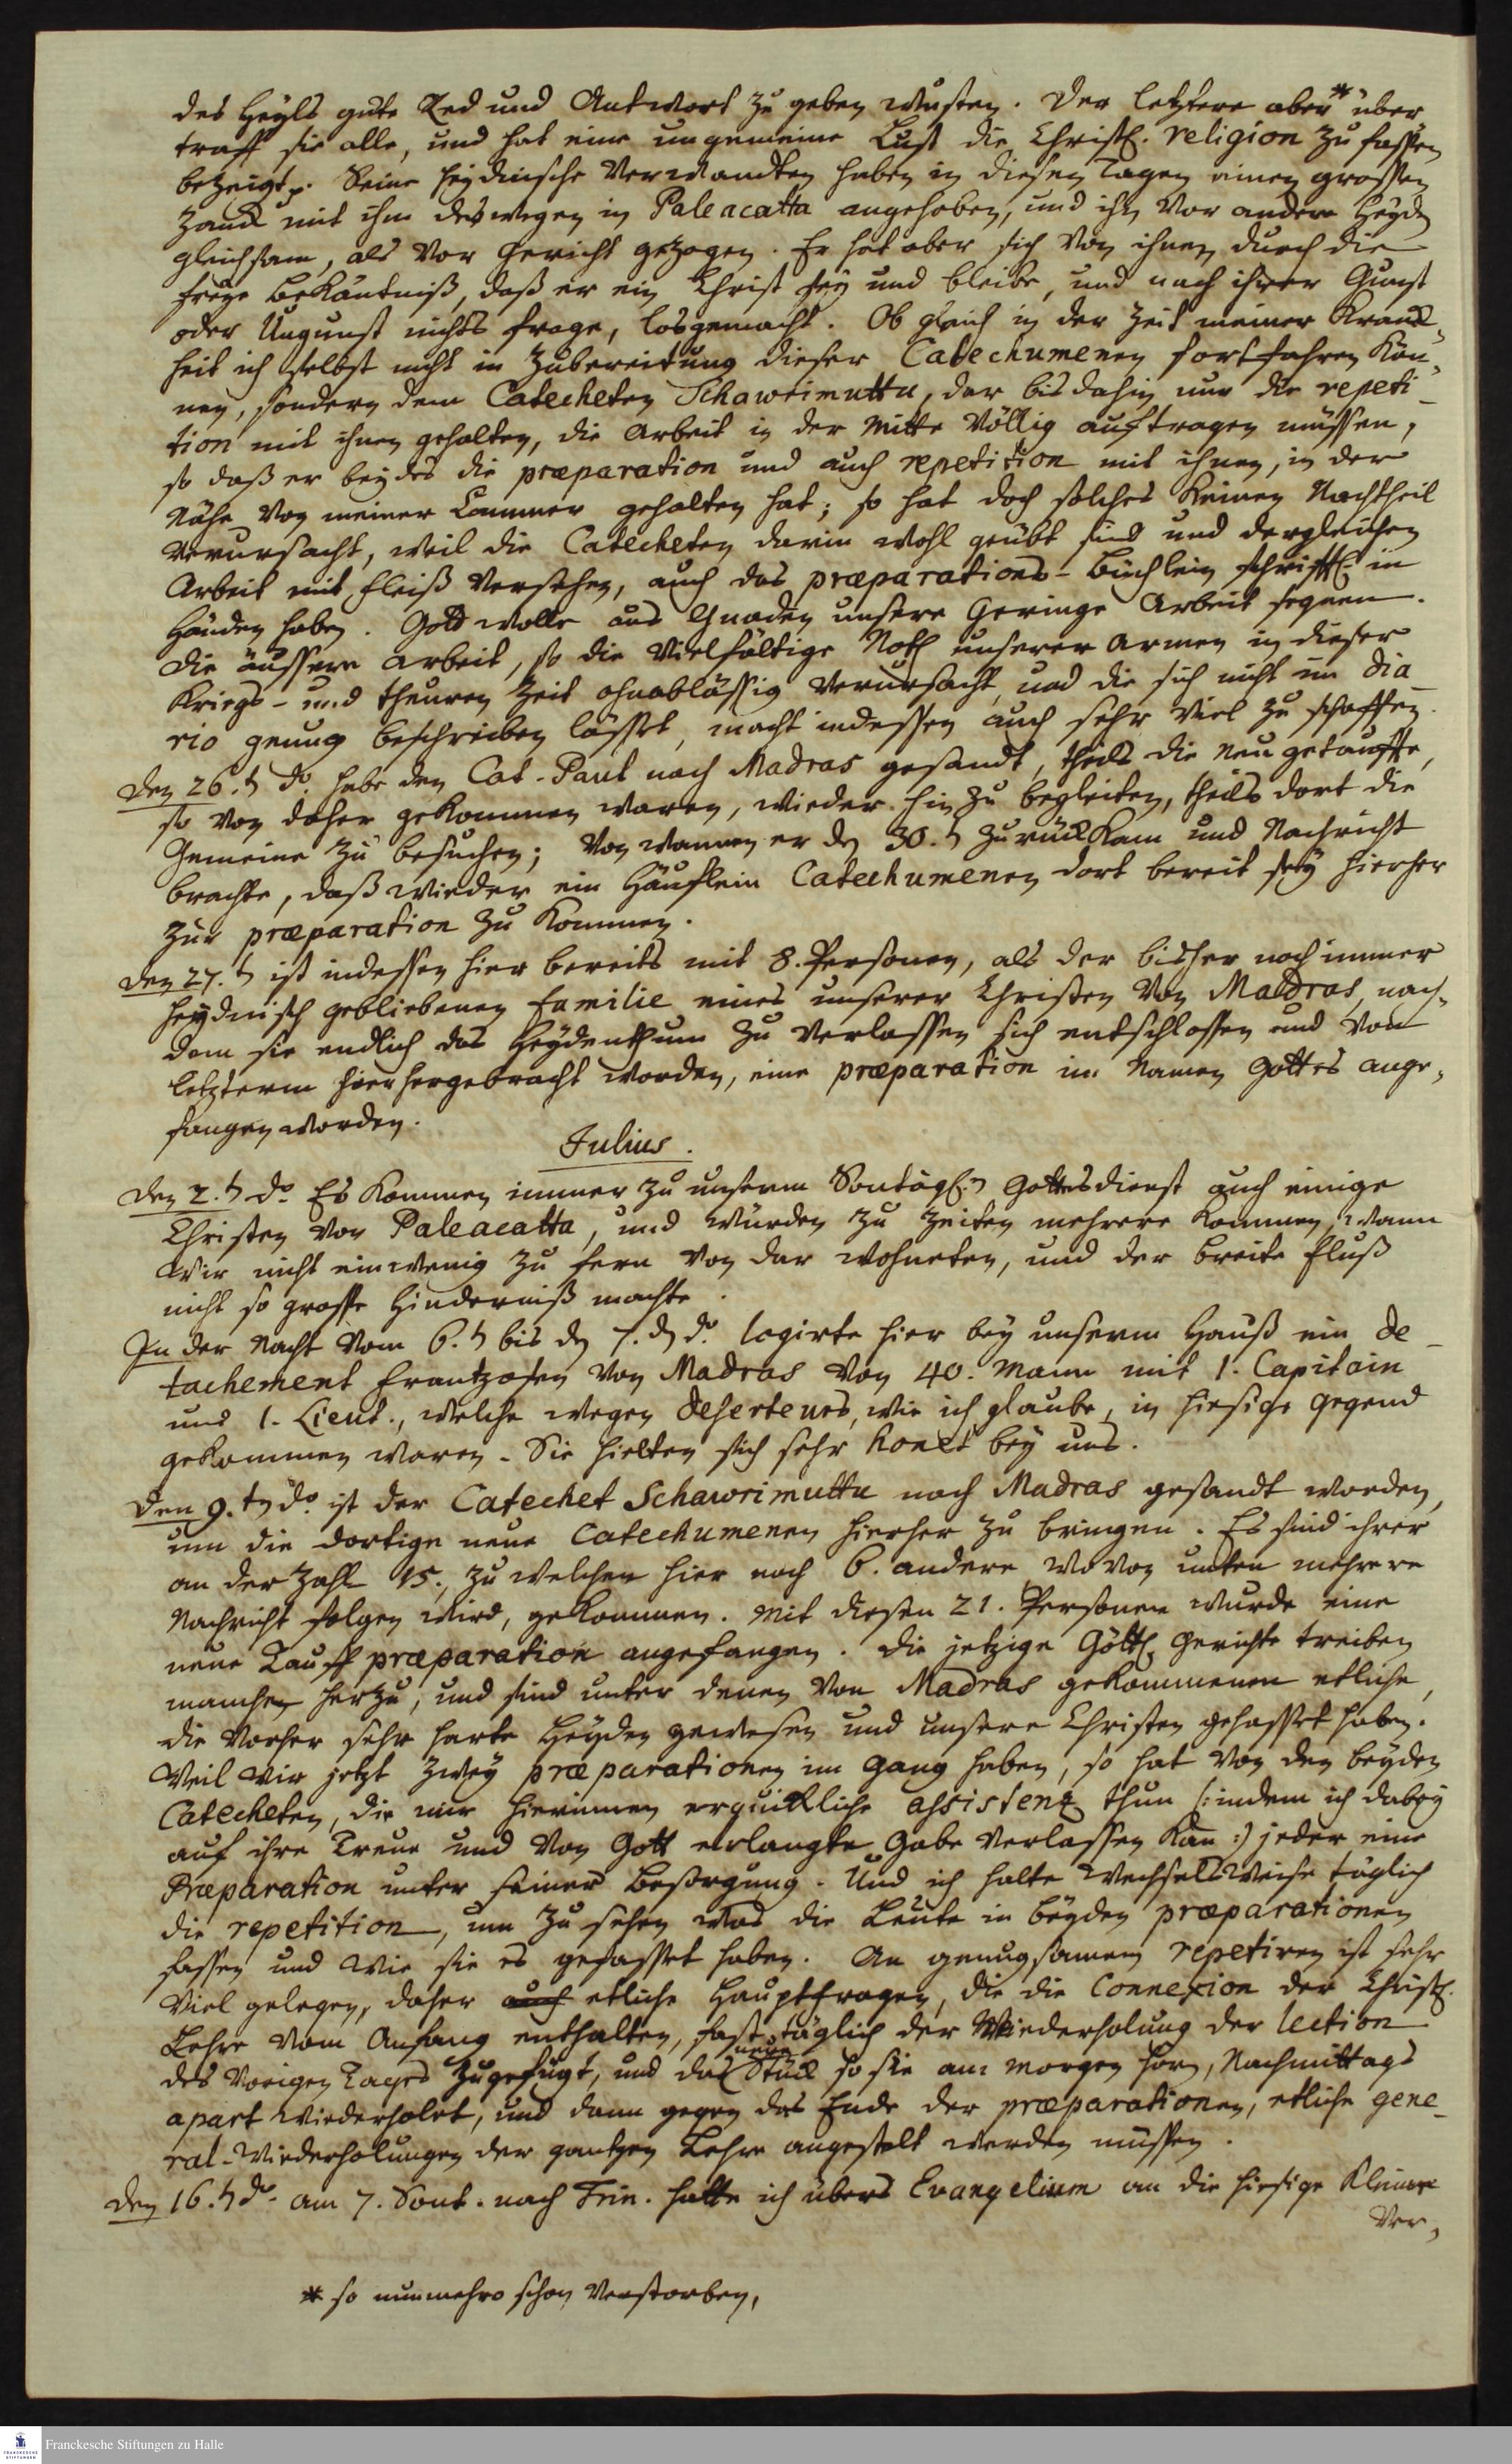 des Heyls gute Red und Antwort zu geben wusten. Der letztere aber* über
traff sie alle, und hat eine ungemeine Lust die Christl. religion zu fassen
bezeigt. Seine heydnische Verwandten haben in diesen Tagen einen grossen
Zanck mit ihm deswegen in Paleacatta angehoben, und ihn vor andern Heyden
gleichsam, als vor Gericht gezogen. Er hat aber sich von ihnen durch die
freye Bekäntniß, daß er ein Christ sey und bleibe, und nach ihrer Gunst
oder Ungunst nichts frage, losgemacht. Ob gleich in der Zeit meiner Kranck-
heit ich selbst nicht in Zubereitung dieser Catechumenen fortfahren kön-
nen, sondern dem Catecheten Schawrimuttu, der bis dahin nur die repeti-
tion mit ihnen gehalten, die Arbeit in der Mitte völlig auftragen müssen,
so daß er beydes die præparation und auch repetition mit ihnen, in der
Nähe von meiner Cammer gehalten hat; so hat doch solches keinen Nachtheil
verursacht, weil die Catecheten darin wohl geübt sind und dergleichen
Arbeit mit Fleiß versehen, auch das præparations-Büchlein schriftl. in
Händen haben. Gott wolle aus Gnaden unsere geringe Arbeit segnen.
Die äussere Arbeit, so die vielfältige Noth unserer Armen in dieser
Kriegs- und theuren Zeit ohnabläßig verursacht, und die sich nicht im dia-
rio genug beschreiben lässet, macht indessen auch sehr viel zu schaffen.
Den 26.t do. habe den Cat. Paul nach Madras gesandt, theils die neugetauffte,
so von daher gekommen waren, wieder hin zu begleiten, theils dort die
Gemeine zu besuchen; von wannen er den 30.t zurückkam und Nachricht
brachte, daß wieder ein Häuflein Catechumenen dort bereit sey hierher
zur præparation zu kommen.
Den 27.t ist indessen hier bereits mit 8. Personen, als der bisher noch immer
heydnisch gebliebenen familie eines unserer Christen von Madras, nach-
dem sie endlich das Heydenthum zu verlassen sich entschlossen und von
letzterm hierhergebracht worden, eine præparation im Namen Gottes ange-
fangen worden.
Julius.
Den 2.t do. Es kommen immer zu unserm Sontägl.n Gottesdienst auch einige
Christen von Paleacatta, und würden zu Zeiten mehrere kommen, wann
wir nicht ein wenig zu fern von dar wohneten, und der breite Fluß
nicht so grosse Hinderniß machte.
In der Nacht vom 6.t bis den 7.t do. logirte hier bey unserm Hauß ein de-
tachement Frantzosen von Madras von 40. Mann mit 1. Capitain
und 1. Lieut., welche wegen deserteurs, wie ich glaube, in hiesige Gegend
gekommen waren. Sie hielten sich sehr honet bey uns.
Den 9.tn do. ist der Catechet Schawrimuttu nach Madras gesandt worden,
um die dortige neue Catechumenen hierher zu bringen. Es sind ihrer
an der Zahl 15. zu welchen hier noch 6. andere, wovon unten mehrere
Nachricht folgen wird, gekommen. Mit diesen 21. Personen wurde eine
neue Tauff præparation angefangen. Die jetzige Göttl. Gerichte treiben
manchen herzu, und sind unter denen von Madras gekommenen etliche,
die vorher sehr harte Heyden gewesen und unsere Christen gehasset haben.
Weil wir jetzt zwey præparationen im Gang haben, so hat von den beyden
Catecheten, die mir hierinnen erquickliche assistenz thun (:indem ich dabey
auf ihre Treue und von Gott erlangte Gabe verlassen kan:) jeder eine
Præparation unter seiner Besorgung. Und ich halte wechselsweise täglich
die repetition, um zu sehen was die Leute in beyden præparationen
fassen und wie sie es gefasset haben. An genugsamem repetiren ist sehr
viel gelegen, daher auch etliche Hauptfragen, die die Connexion der Christl.
Lehre vom Anfang enthalten, fast täglich der Wiederholung der lection
des vorigen Tages zugefügt, und das neue Stück so sie am Morgen hören, Nachmittags
apart wiederholet, und dann gegen das Ende der præparationen, etliche gene-
ral-Wiederholungen der gantzen Lehre angestelt werden müssen.
Den 16.t do. am 7. Sont. nach Trin. hatte ich übers Evangelium an die hiesige kleine
Ver-
* so nunmehro schon verstorben,
Franckesche Stiftungen zu Halle